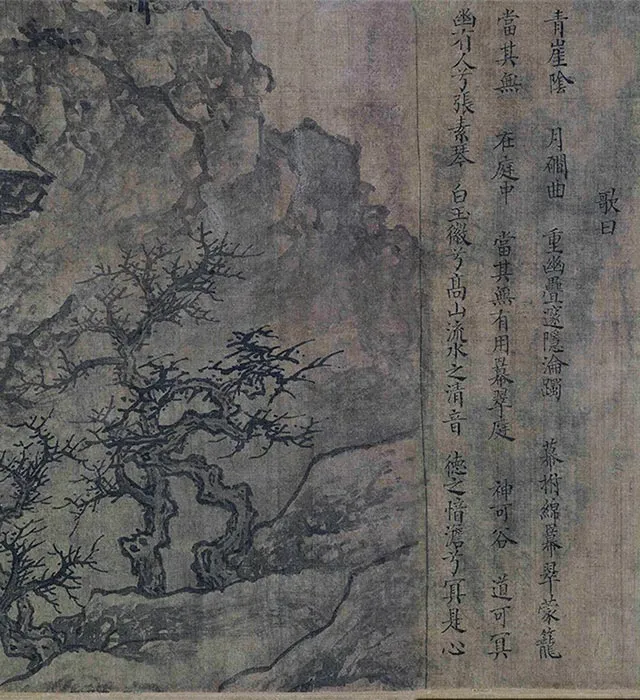 歌曰
青崖陰 月磵曲 重幽疊邃隱淪躅 綿冪翠蒙籠
當其無 在庭中 當其無有用冪翠庭 神可谷 道可冥
幽有人兮張素琴 白玉徽兮高山流水之清音 德之愔澹兮冥是心